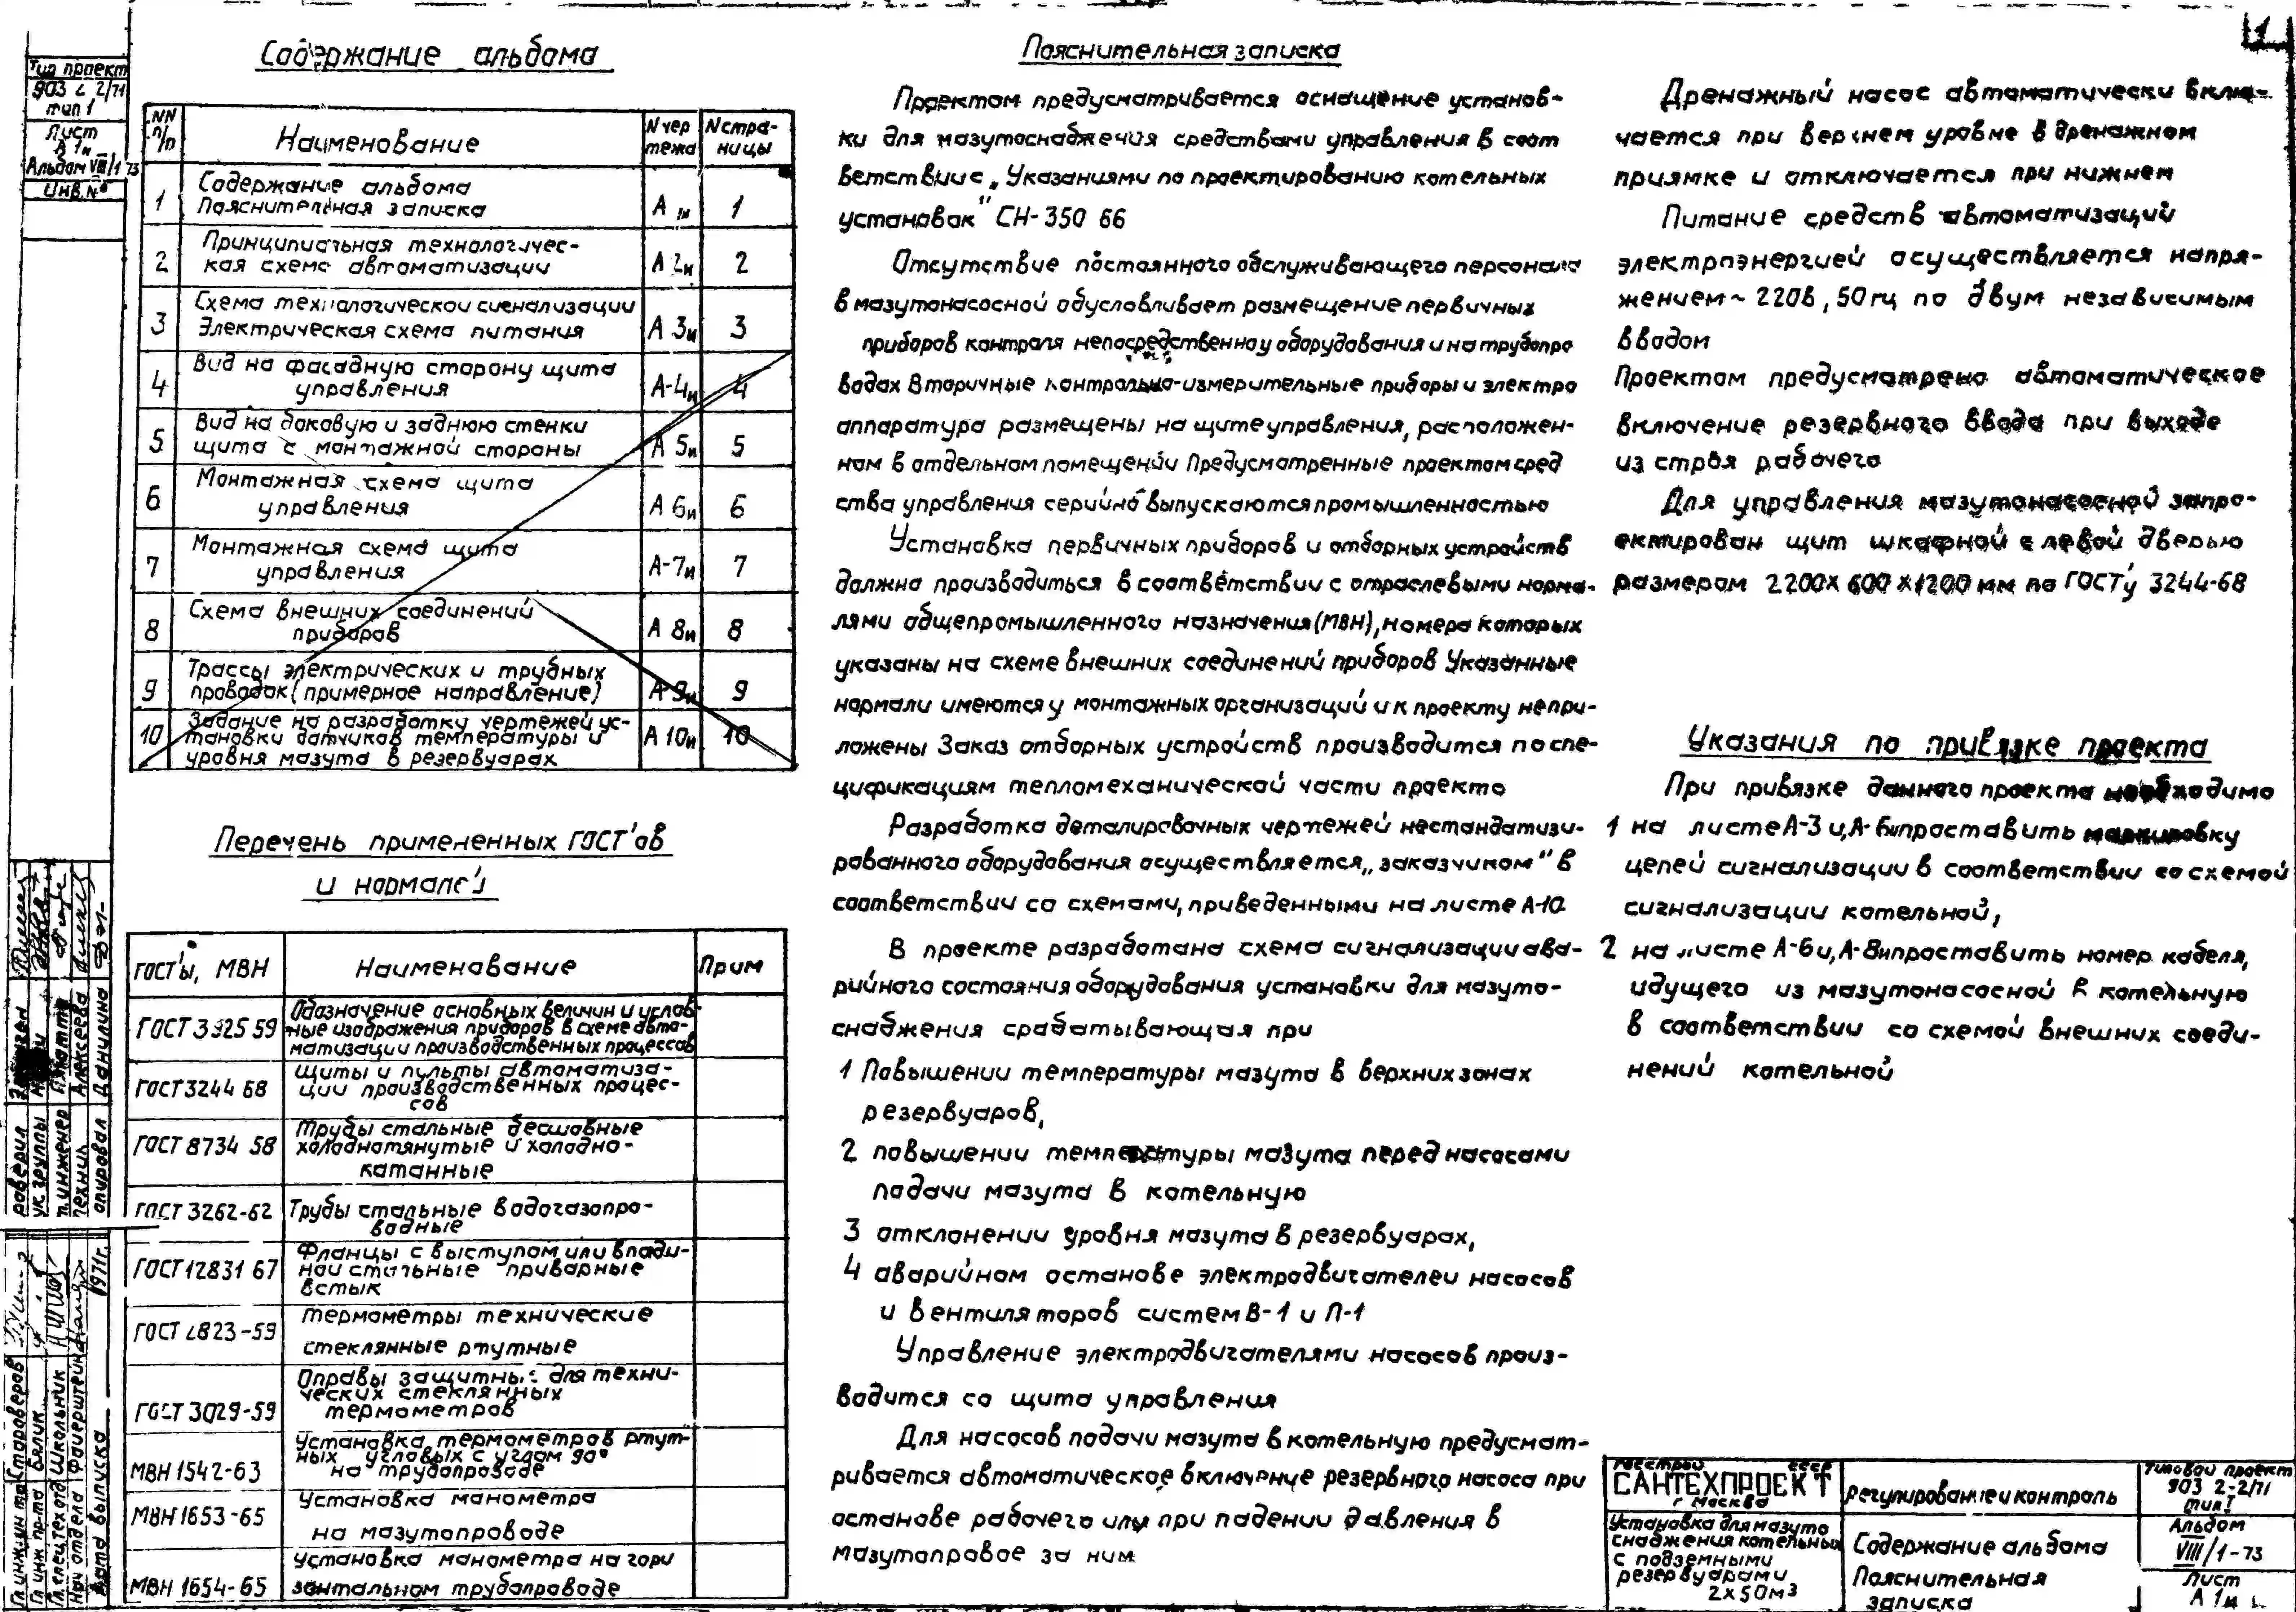 1
Тип проект
903 2 2/71
тип 1
Лист
А 1и
Альбом VIII/1 73
Инв. №
Содержание альбома
NN п/п
Наименование
N чертежа
N страницы
1
Содержание альбома
Пояснительная записка
А 1и
1
2
Принципиальная технологичес-
кая схема автоматизации
А 2и
2
3
Схема технологической сигнализации
Электрическая схема питания
А 3и
3
4
Вид на фасадную сторону щита
управления
А-4и
4
5
Вид на боковую и заднюю стенки
щита с монтажной стороны
А 5и
5
6
Монтажная схема щита
управления
А 6и
6
7
Монтажная схема щита
управления
А-7и
7
8
Схема внешних соединений
приборов
А 8и
8
9
Трассы электрических и трубных
проводок (примерное направление)
А-9и
9
10
Задание на разработку чертежей ус-
тановки датчиков температуры и
уровня мазута в резервуарах
А 10и
10
Перечень примененных ГОСТ'ов
и нормалей
ГОСТ'ы, МВН
Наименование
Прим
ГОСТ 3925 59
Обозначение основных величин и услов-
ные изображения приборов в схеме авто-
матизации производственных процессов
ГОСТ 3244 68
Щиты и пульты автоматиза-
ции производственных процес-
сов
ГОСТ 8734 58
Трубы стальные бесшовные
холоднотянутые и холодно-
катанные
ГОСТ 3262-62
Трубы стальные водогазопро-
водные
ГОСТ 12831 67
Фланцы с выступом или впади-
ной стальные приварные
встык
ГОСТ 2823-59
Термометры технические
стеклянные ртутные
ГОСТ 3029-59
Оправы защитные для техни-
ческих стеклянных
термометров
МВН 1542-63
Установка термометров ртут-
ных угловых с углом 90°
на трубопроводе
МВН 1653-65
Установка манометра
на мазутопроводе
МВН 1654-65
Установка манометра на гори
зонтальном трубопроводе
Пояснительная записка
Проектом предусматривается оснащение установ-
ки для мазутоснабжения средствами управления в соот
ветствии с „Указаниями по проектированию котельных
установок" СН-350 66
Отсутствие постоянного обслуживающего персонала
в мазутонасосной обусловливает размещение первичных
приборов контроля непосредственно у оборудования и на трубопро
водах Вторичные контрольно-измерительные приборы и электро
аппаратура размещены на щите управления, расположен-
ном в отдельном помещении Предусмотренные проектом сред
ства управления серийно выпускаются промышленностью
Установка первичных приборов и отборных устройств
должна производиться в соответствии с отраслевыми норма-
лями общепромышленного назначения (МВН), номера которых
указаны на схеме внешних соединений приборов Указанные
нормали имеются у монтажных организаций и к проекту непри-
ложены Заказ отборных устройств производится по спе-
цификациям тепломеханической части проекта
Разработка деталировочных чертежей нестандатизи-
рованного оборудования осуществляется „заказчиком" в
соответствии со схемами, приведенными на листе А-10
В проекте разработана схема сигнализации ава-
рийного состояния оборудования установки для мазуто-
снабжения срабатывающая при
1 Повышении температуры мазута в верхних зонах
резервуаров,
2 повышении температуры мазута перед насосами
подачи мазута в котельную
3 отклонении уровня мазута в резервуарах,
4 аварийном останове электродвигателей насосов
и вентиляторов систем В-1 и П-1
Управление электродвигателями насосов произ-
водится со щита управления
Для насосов подачи мазута в котельную предусмат-
ривается автоматическое включение резервного насоса при
останове рабочего или при падении давления в
мазутопровое за ним
Дренажный насос автоматически вклю-
чается при верхнем уровне в дренажном
приямке и отключается при нижнем
Питание средств автоматизаций
электроэнергией осуществляется напря-
жением ~ 220в, 50 гц по двум независимым
вводом
Проектом предусмотрено автоматическое
включение резервного ввода при выходе
из строя рабочего
Для управления мазутонасосной запро-
ектирован щит шкафной с левой дверью
размером 2200 х 600 х 1200 мм по ГОСТ'у 3244-68
Указания по привязке проекта
При привязке данного проекта необходимо
1 на листе А-3 и, А-6и проставить маркировку
цепей сигнализации в соответствии со схемой
сигнализации котельной,
2 на листе А-6и, А-8и проставить номер кабеля,
идущего из мазутонасосной в котельную
в соответствии со схемой внешних соеди-
нений котельной
Госстрой СССР
САНТЕХПРОЕКТ
г Москва
Регулирование и контроль
Типовой проект
903 2-2/71
тип I
Установка для мазуто
снабжения котельных
с подземными
резервуарами
2х50м3
Содержание альбома
Пояснительная
записка
Альбом
VIII/1-73
Лист
А 1и
роверил
ук. группы
т. инженер
Техник
Алексеева
опировал
Данилина
Гл инж ин та
Староверов
Гл инж пр-та
Бялик
Гл. спец. тех отд
Школьник
Нач отдела
Файерштейн
Дата выпуска
1971г.